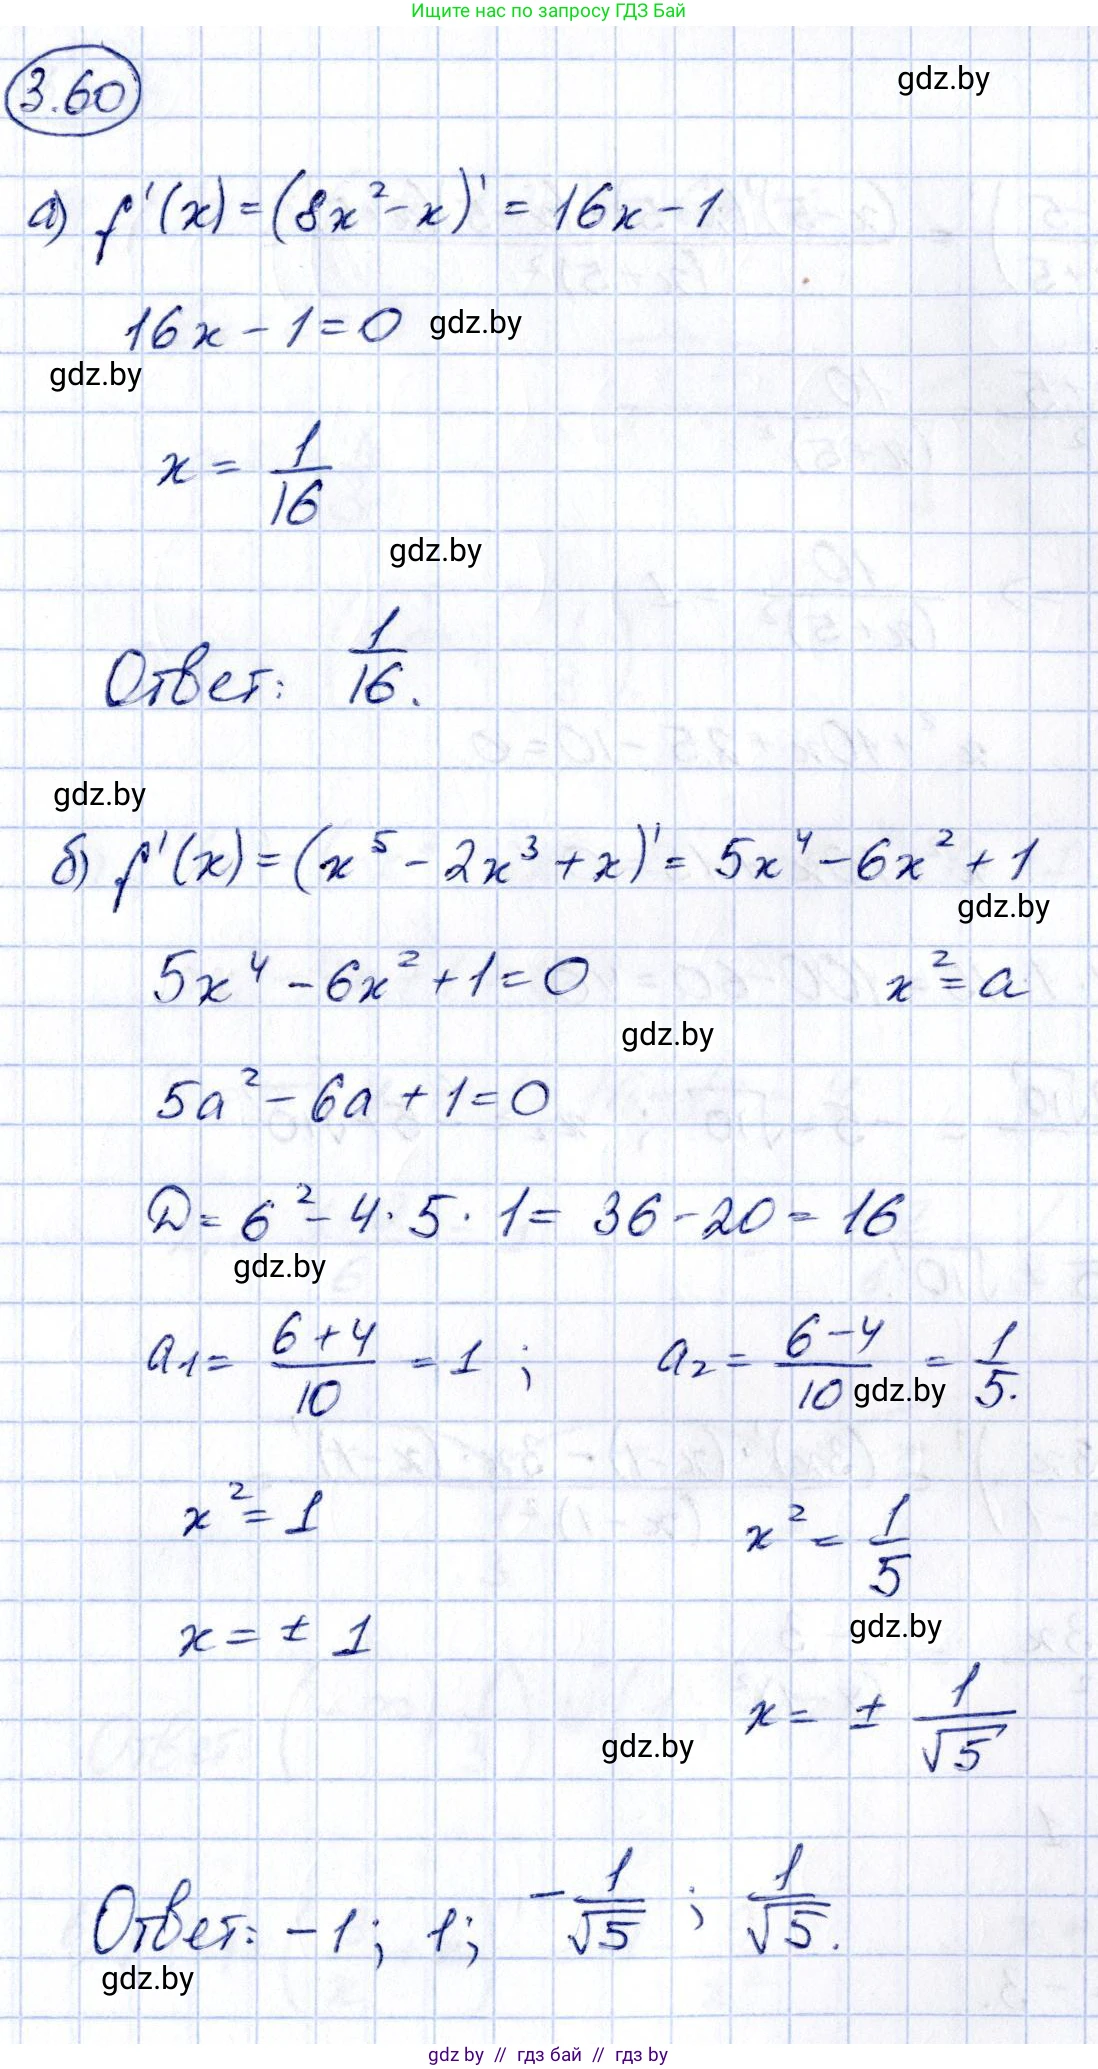 Ищите нас по запросу ГДЗ Бай
3.60
gdz.by
а) f'(x) = (8x² - x)' = 16x - 1
16x - 1 = 0 gdz.by
gdz.by
x = 1/16
gdz.by
Ответ: 1/16.
gdz.by
б) f'(x) = (x⁵ - 2x³ + x)' = 5x⁴ - 6x² + 1
gdz.by
5x⁴ - 6x² + 1 = 0 x² = a
gdz.by
5a² - 6a + 1 = 0
D = 6² - 4 · 5 · 1 = 36 - 20 = 16
gdz.by
a₁ = (6 + 4)/10 = 1 ; a₂ = (6 - 4)/10 = 1/5.
gdz.by
x² = 1 x² = 1/5
gdz.by
x = ± 1
x = ± 1/√5
gdz.by
Ответ: -1; 1; -1/√5 ; 1/√5.
gdz.by
gdz by // гдз бай // гдз by